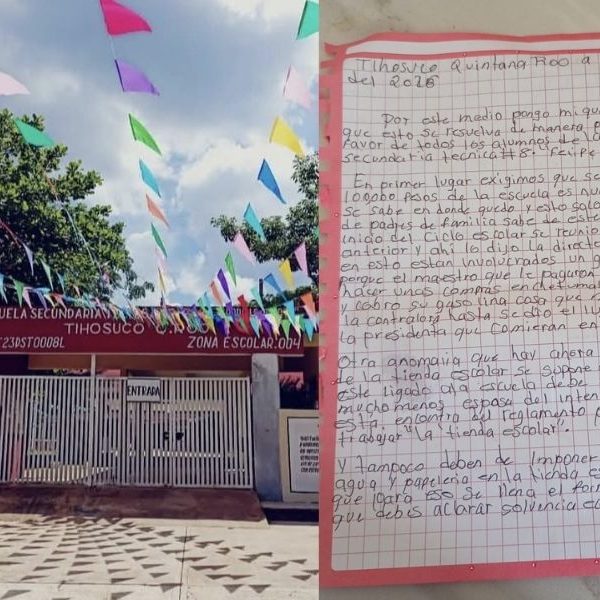 UELA SECUNDARIA
TIHOSUCO Q. ROO
23DST0008L
ZONA ESCOLAR:004
ENTRADA
Tihosuco Quintana Roo a
del 2026
Por este medio pongo mi qu
que esto se resuelva de manera p
favor de todos los alumnos de la
secundaria tecnica #8. Felipe
En primer lugar exigimos que se
100,000 pesos de la escuela es nu
se sabe en donde quedo y esto solo
de padres de familia sabe de este
inicio del ciclo escolar se reunio
anterior y ahi lo dijo la directo
en esto estan involucrados un g
porque el maestro que le pagaron
hacer unas compras en chetumal
y cobro su gasolina cosa que n
la contralora hasta se dio el lu
la presidenta que comieran en
Otra anomaira que hay ahora
de la tienda escolar se supone
este ligado ala escuela debe
mucho menos esposa del inten
esta encontra del reglamento p
trabajar "La tienda escolar".
Y tampoco deben de Imponer
agua y papeleria en la tienda es
que para eso se llena el for
que debes aclarar solvencia eco